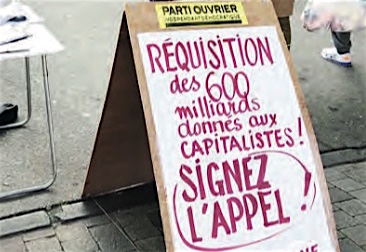 PARTI OUVRIER
INDÉPENDANT DÉMOCRATIQUE
RÉQUISITION
des 600
milliards
donnés aux
CAPITALISTES !
SIGNEZ
L'APPEL !